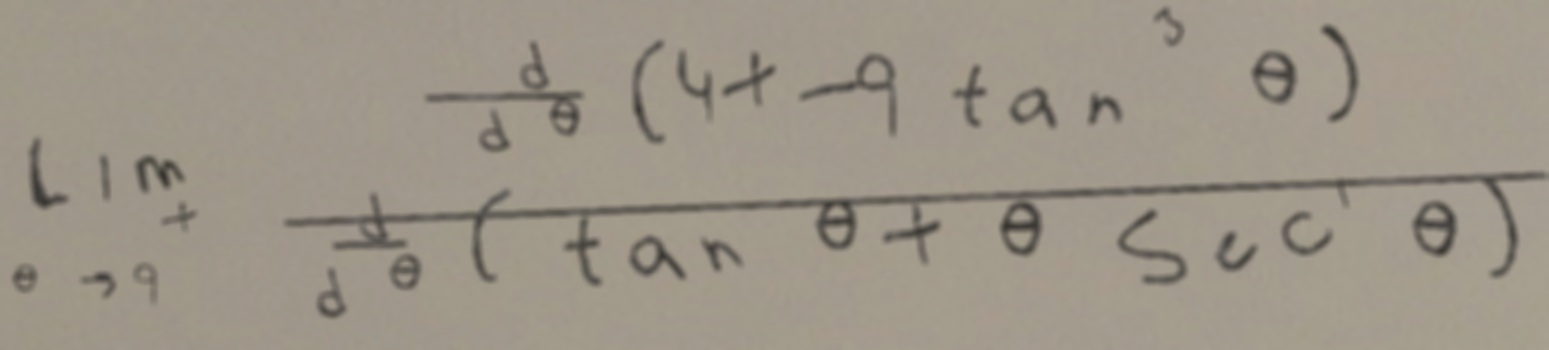 \lim_{\theta \to 9^{+}} \frac{\frac{d}{d\theta}(4 + -9 \tan^{3} \theta)}{\frac{d}{d\theta}(\tan \theta + \theta \sec^{1} \theta)}